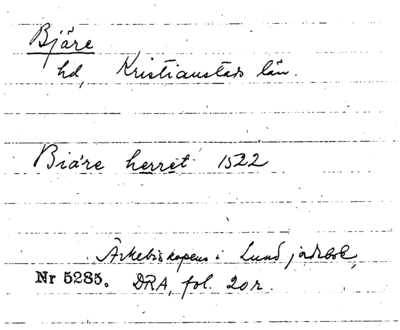 Bjäre
hd, Kristianstads län.
Biäre herret 1522
Ärkebiskopens i Lund jordebok,
Nr 5285. DRA, fol. 20r.